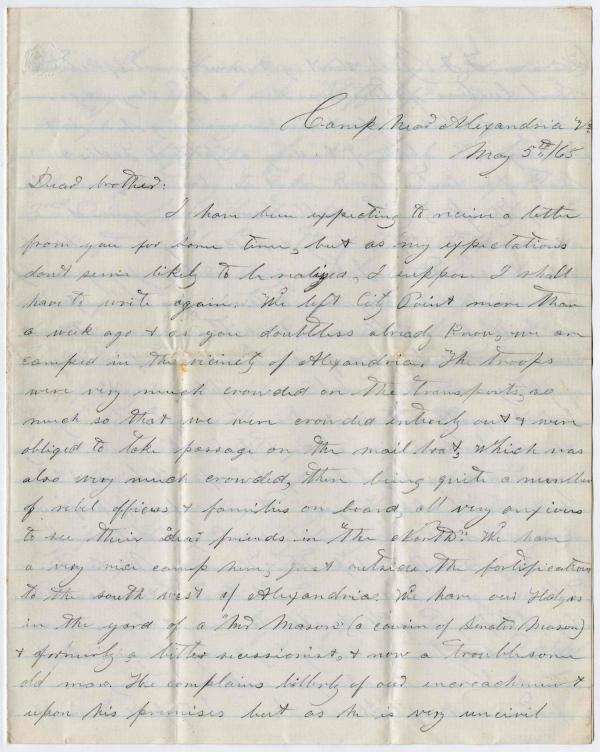 Camp near Alexandria Va
May 5th/65
Dear brother:
I have been expecting to receive a letter
from you for some time, but as my expectations
don't seem likely to be realized, I suppose I shall
have to write again. We left City Point more than
a week ago & as you doubtless already know, we are
camped in the vicinity of Alexandria. The troops
were very much crowded on the transports, so
much so that we were crowded entirely out & were
obliged to take passage on the mail boat, which was
also very much crowded, there being quite a number
of rebel officers & families on board, all very anxious
to see their "dear friends in "the North". We have
a very nice camp here, just outside the fortifications
to the south west of Alexandria. We have our Hdqrs
in the yard of a "Mr Mason" (a cousin of Senator Mason)
& formerly a bitter secessionist, & now a troublesome
old man. He complains bitterly of our encroachment
upon his premises but as he is very uncivil